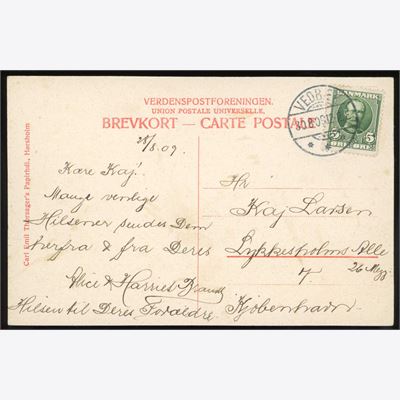 VERDENSPOSTFORENINGEN.
UNION POSTALE UNIVERSELLE.
BREVKORT – CARTE POSTALE
DANMARK
5 5
ØRE ØRE
VEDB
Carl Emil Thornøger's Papirhdl., Hørsholm
28/8.09.
Kære Kaj!
Mange venlige
Hilsener sendes Dem
herfra & fra Deres
Alice & Harriet Brandt
Hilsen til Deres Forældre.
Hr
Kaj Larsen
Lykkesholms Alle
7
København